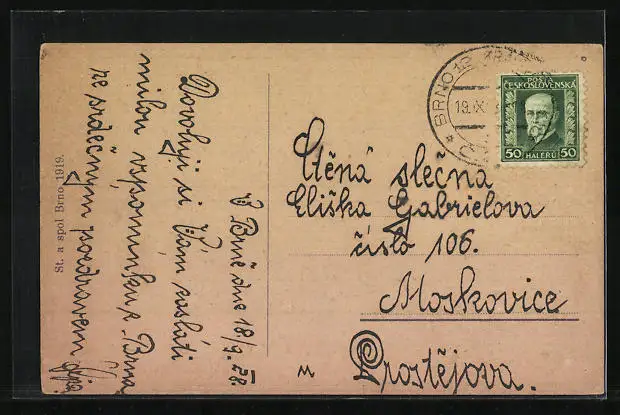 V Brně dne 18/9. 28.
Dovoluji si Vám zaslati
milou vzpomínku z Brna
se srdečným pozdravem
St. a spol Brno 1919.
BRNO 12
19. X
POŠTA
ČESKOSLOVENSKÁ
50 HALÉŘŮ 50
Ctěná slečna
Eliška Gabrielova
číslo 106.
Moskovice
Prostějova.
M